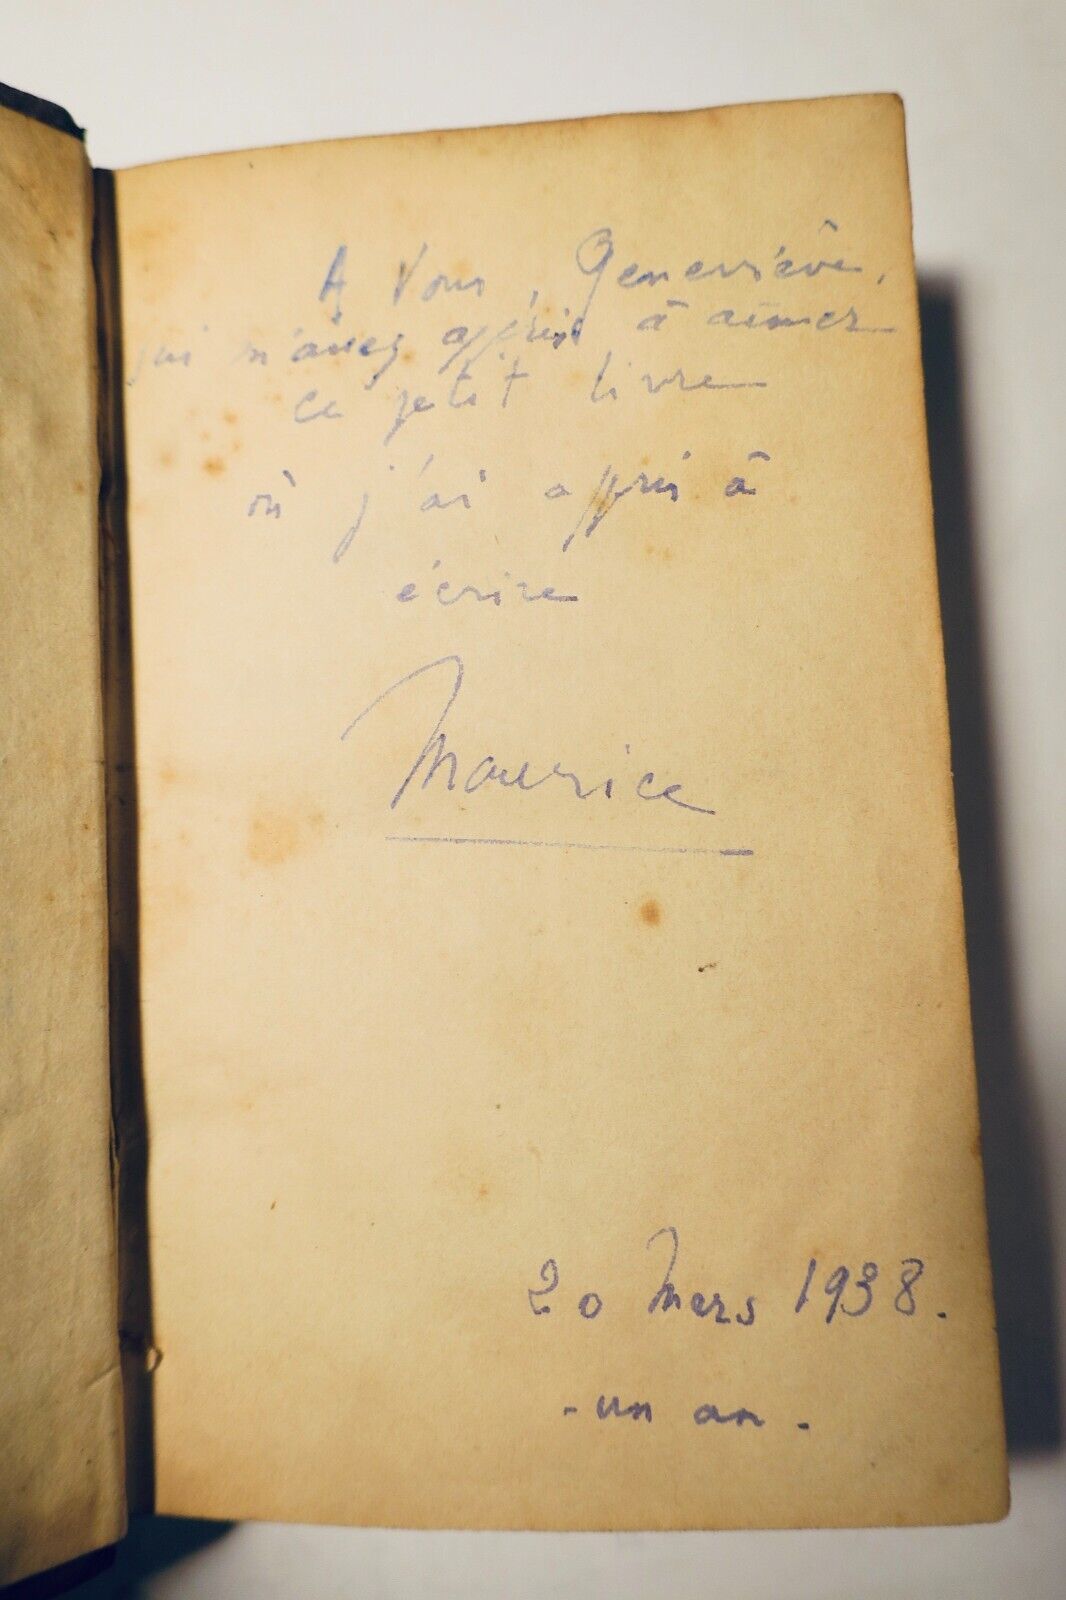 A Vous, Geneviève,
qui m'avez appris à aimer
ce petit livre
où j'ai appris à
écrire
Maurice
20 Mars 1938.
- un an -